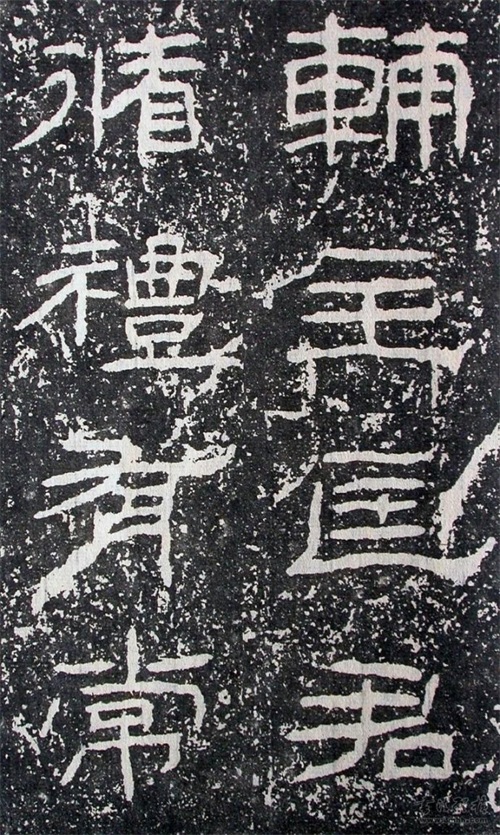 輔主匡君
循禮有常